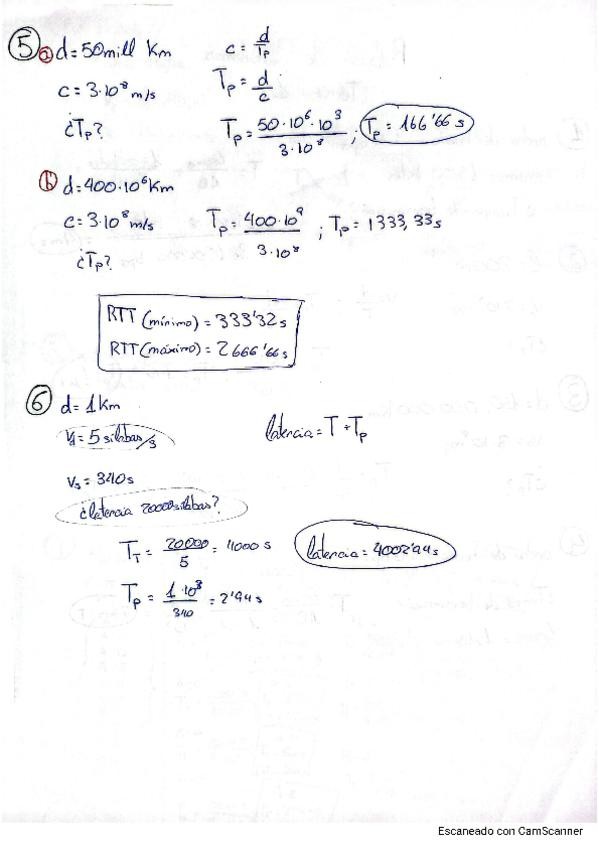 5 a d = 50 mill Km c = d/Tp
c = 3·10⁸ m/s Tp = d/c
¿Tp? Tp = 50·10⁶·10³/3·10⁸ ; Tp = 166'66 s
b d = 400·10⁶ Km
c = 3·10⁸ m/s Tp = 400·10⁹/3·10⁸ ; Tp = 1333,33 s
¿Tp?
RTT (mínimo) = 333'32 s
RTT (máximo) = 2666'66 s
6 d = 1 Km
= 5 silabas/s latencia = T + Tp
Vs = 340 s
¿latencia 20000 silabas?
T_T = 20000/5 = 4000 s latencia = 4002'94 s
Tp = 1·10³/340 = 2'94 s
Escaneado con CamScanner